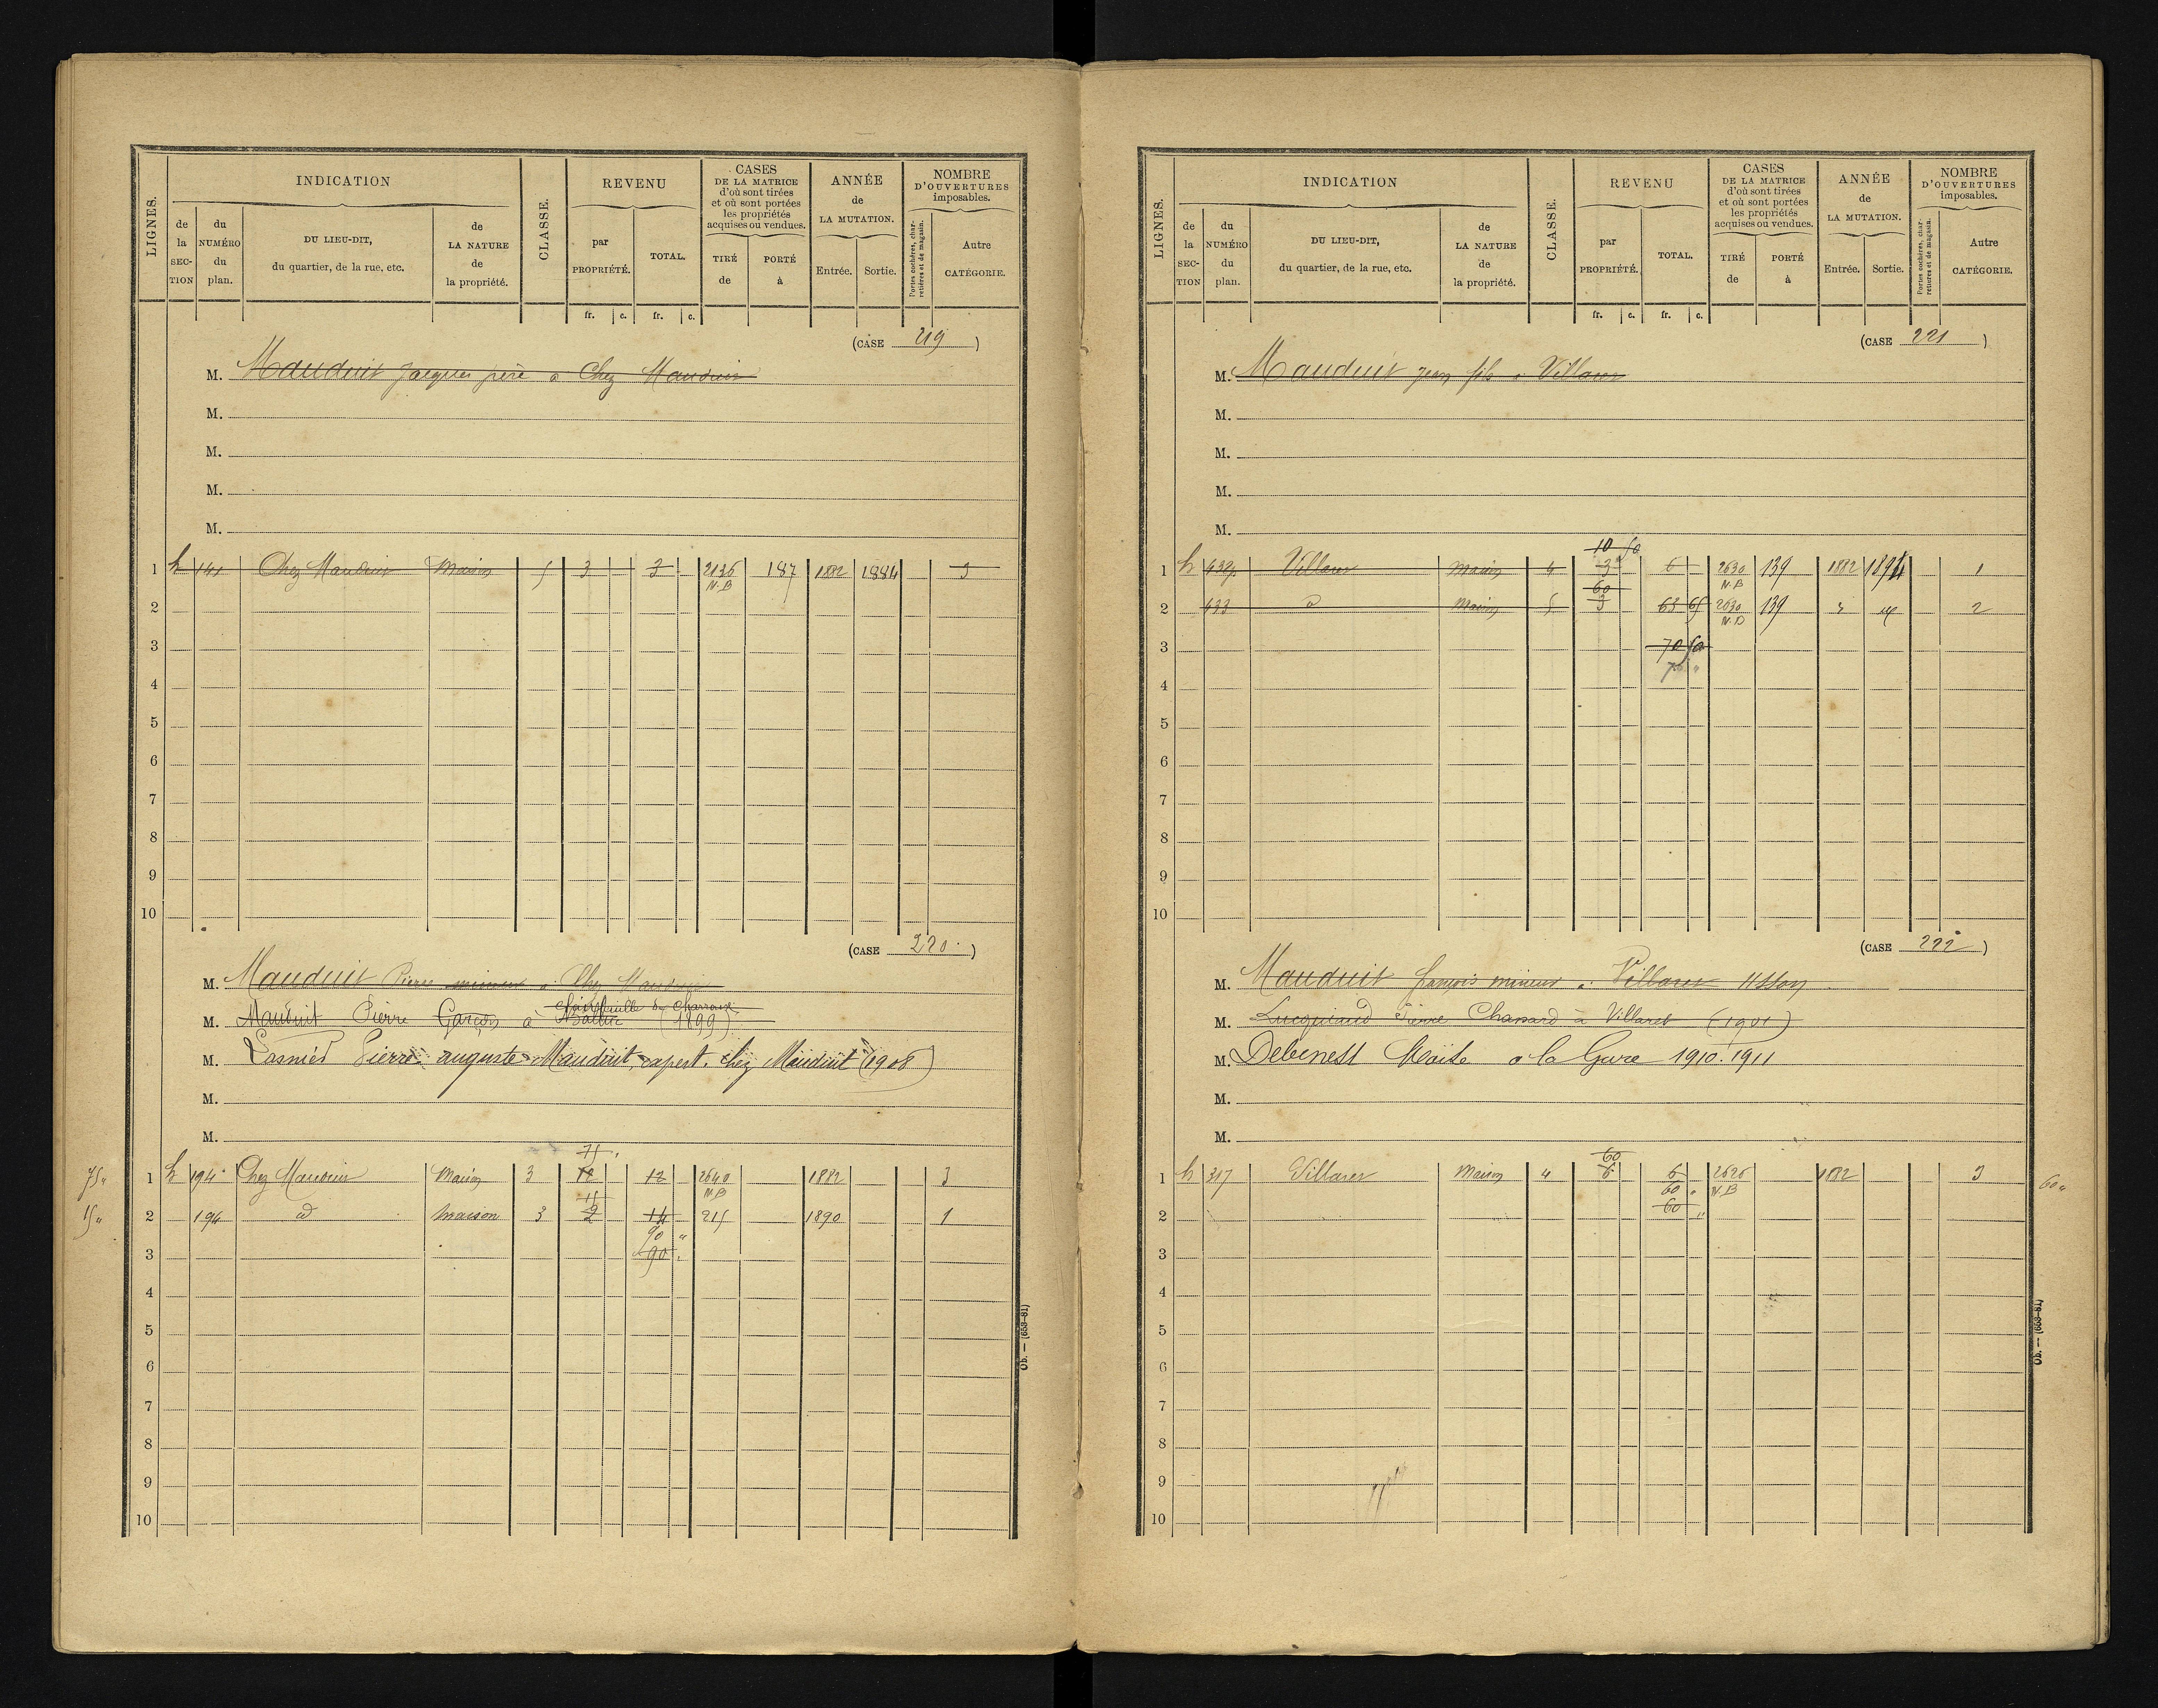 LIGNES.
INDICATION
de la SECTION
du NUMÉRO du plan.
DU LIEU-DIT, du quartier, de la rue, etc.
de LA NATURE de la propriété.
CLASSE.
REVENU
par PROPRIÉTÉ.
TOTAL.
CASES DE LA MATRICE d'où sont tirées et où sont portées les propriétés acquises ou vendues.
TIRÉ de
PORTÉ à
ANNÉE de LA MUTATION.
Entrée.
Sortie.
NOMBRE D'OUVERTURES imposables.
Portes cochères, charretières et de magasin.
Autre CATÉGORIE.
fr. c. fr. c.
(CASE 219)
M. Mauduit Jacques père à Chez Mauduit
M.
M.
M.
M.
1 h 141 Chez Mauduit Maison 5 3 3 2136 187 1882 1884 3
N.B
2
3
4
5
6
7
8
9
10
(CASE 220)
M. Mauduit Pierre mineur à Chez Mauduit
M. Mauduit Pierre Garçon à (1899)
M. Pierre auguste Mauduit, expert. chez Mauduit (1908)
M.
M.
75
75 " 1 h 194 Chez Mauduit Maison 3 12 12 2640 1882 3
15 N.B
15 " 2 194 d Maison 3 2 14 215 1890 1
90 "
3 90 "
4
5
6
7
8
9
10
Ob. — (653-81)
LIGNES.
INDICATION
de la SECTION
du NUMÉRO du plan.
DU LIEU-DIT, du quartier, de la rue, etc.
de LA NATURE de la propriété.
CLASSE.
REVENU
par PROPRIÉTÉ.
TOTAL.
CASES DE LA MATRICE d'où sont tirées et où sont portées les propriétés acquises ou vendues.
TIRÉ de
PORTÉ à
ANNÉE de LA MUTATION.
Entrée.
Sortie.
NOMBRE D'OUVERTURES imposables.
Portes cochères, charretières et de magasin.
Autre CATÉGORIE.
fr. c. fr. c.
(CASE 221)
M. Mauduit Jean fils à Villaret
M.
M.
M.
M.
10 50
1 h 432p Villaret Maison 4 3 6 2630 139 1882 1894 1
60 N.B
2 433 d Maison 5 3 63 65 2630 139 2
3 70 50
4
5
6
7
8
9
10
(CASE 222)
M. Mauduit françois mineur à Villaret Usson
M. Lucquiaud Pierre Chassard à Villaret (1901)
M. Debenest à la Gare 1910. 1911
M.
M.
60
1 h 317 Villaret Maison 4 6 6 2626 1882 3 60 "
60 " N.B
2 60 "
3
4
5
6
7
8
9
10
Ob. — (653-81)